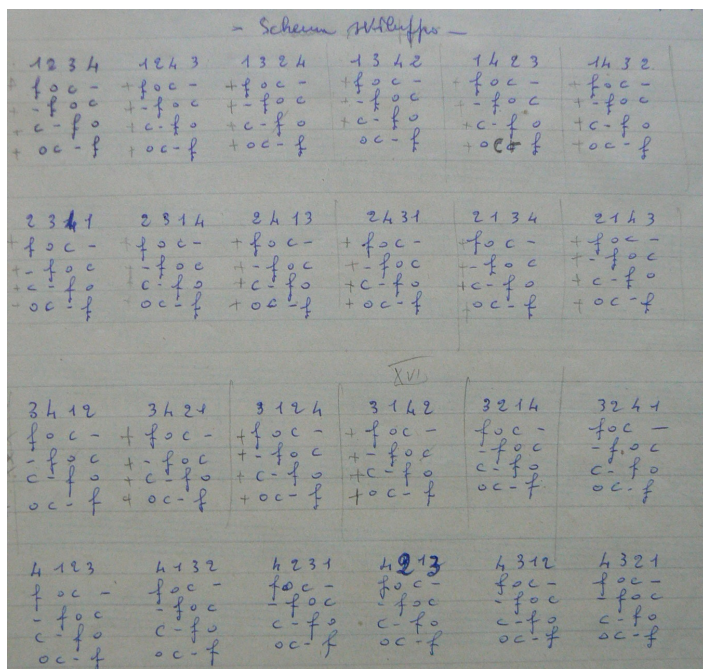 - Schema sviluppo -
1 2 3 4 1 2 4 3 1 3 2 4 1 3 4 2 1 4 2 3 1 4 3 2
+ f o c - + f o c - + f o c - + f o c - + f o c - + f o c -
+ - f o c + - f o c + - f o c + - f o c + - f o c + - f o c
+ c - f o + c - f o + c - f o + c - f o + c - f o + c - f o
+ o c - f + o c - f + o c - f o c - f + o c - f + o c - f
2 3 4 1 2 3 1 4 2 4 1 3 2 4 3 1 2 1 3 4 2 1 4 3
+ f o c - f o c - + f o c - + f o c - + f o c - + f o c -
+ - f o c - f o c + - f o c + - f o c + - f o c + - f o c
+ c - f o c - f o + c - f o + c - f o + c - f o + c - f o
- o c - f o c - f + o c - f + o c - f + o c - f + o c - f
XVI
3 4 1 2 3 4 2 1 3 1 2 4 3 1 4 2 3 2 1 4 3 2 4 1
f o c - + f o c - + f o c - + f o c - f o c - f o c -
- f o c + - f o c + - f o c + - f o c - f o c - f o c
c - f o + c - f o + c - f o + c - f o c - f o c - f o
o c - f + o c - f + o c - f + o c - f o c - f o c - f
4 1 2 3 4 1 3 2 4 2 3 1 4 2 1 3 4 3 1 2 4 3 2 1
f o c - f o c - f o c - f o c - f o c - f o c -
- f o c - f o c - f o c - f o c - f o c - f o c
c - f o c - f o c - f o c - f o c - f o c - f o
o c - f o c - f o c - f o c - f o c - f o c - f